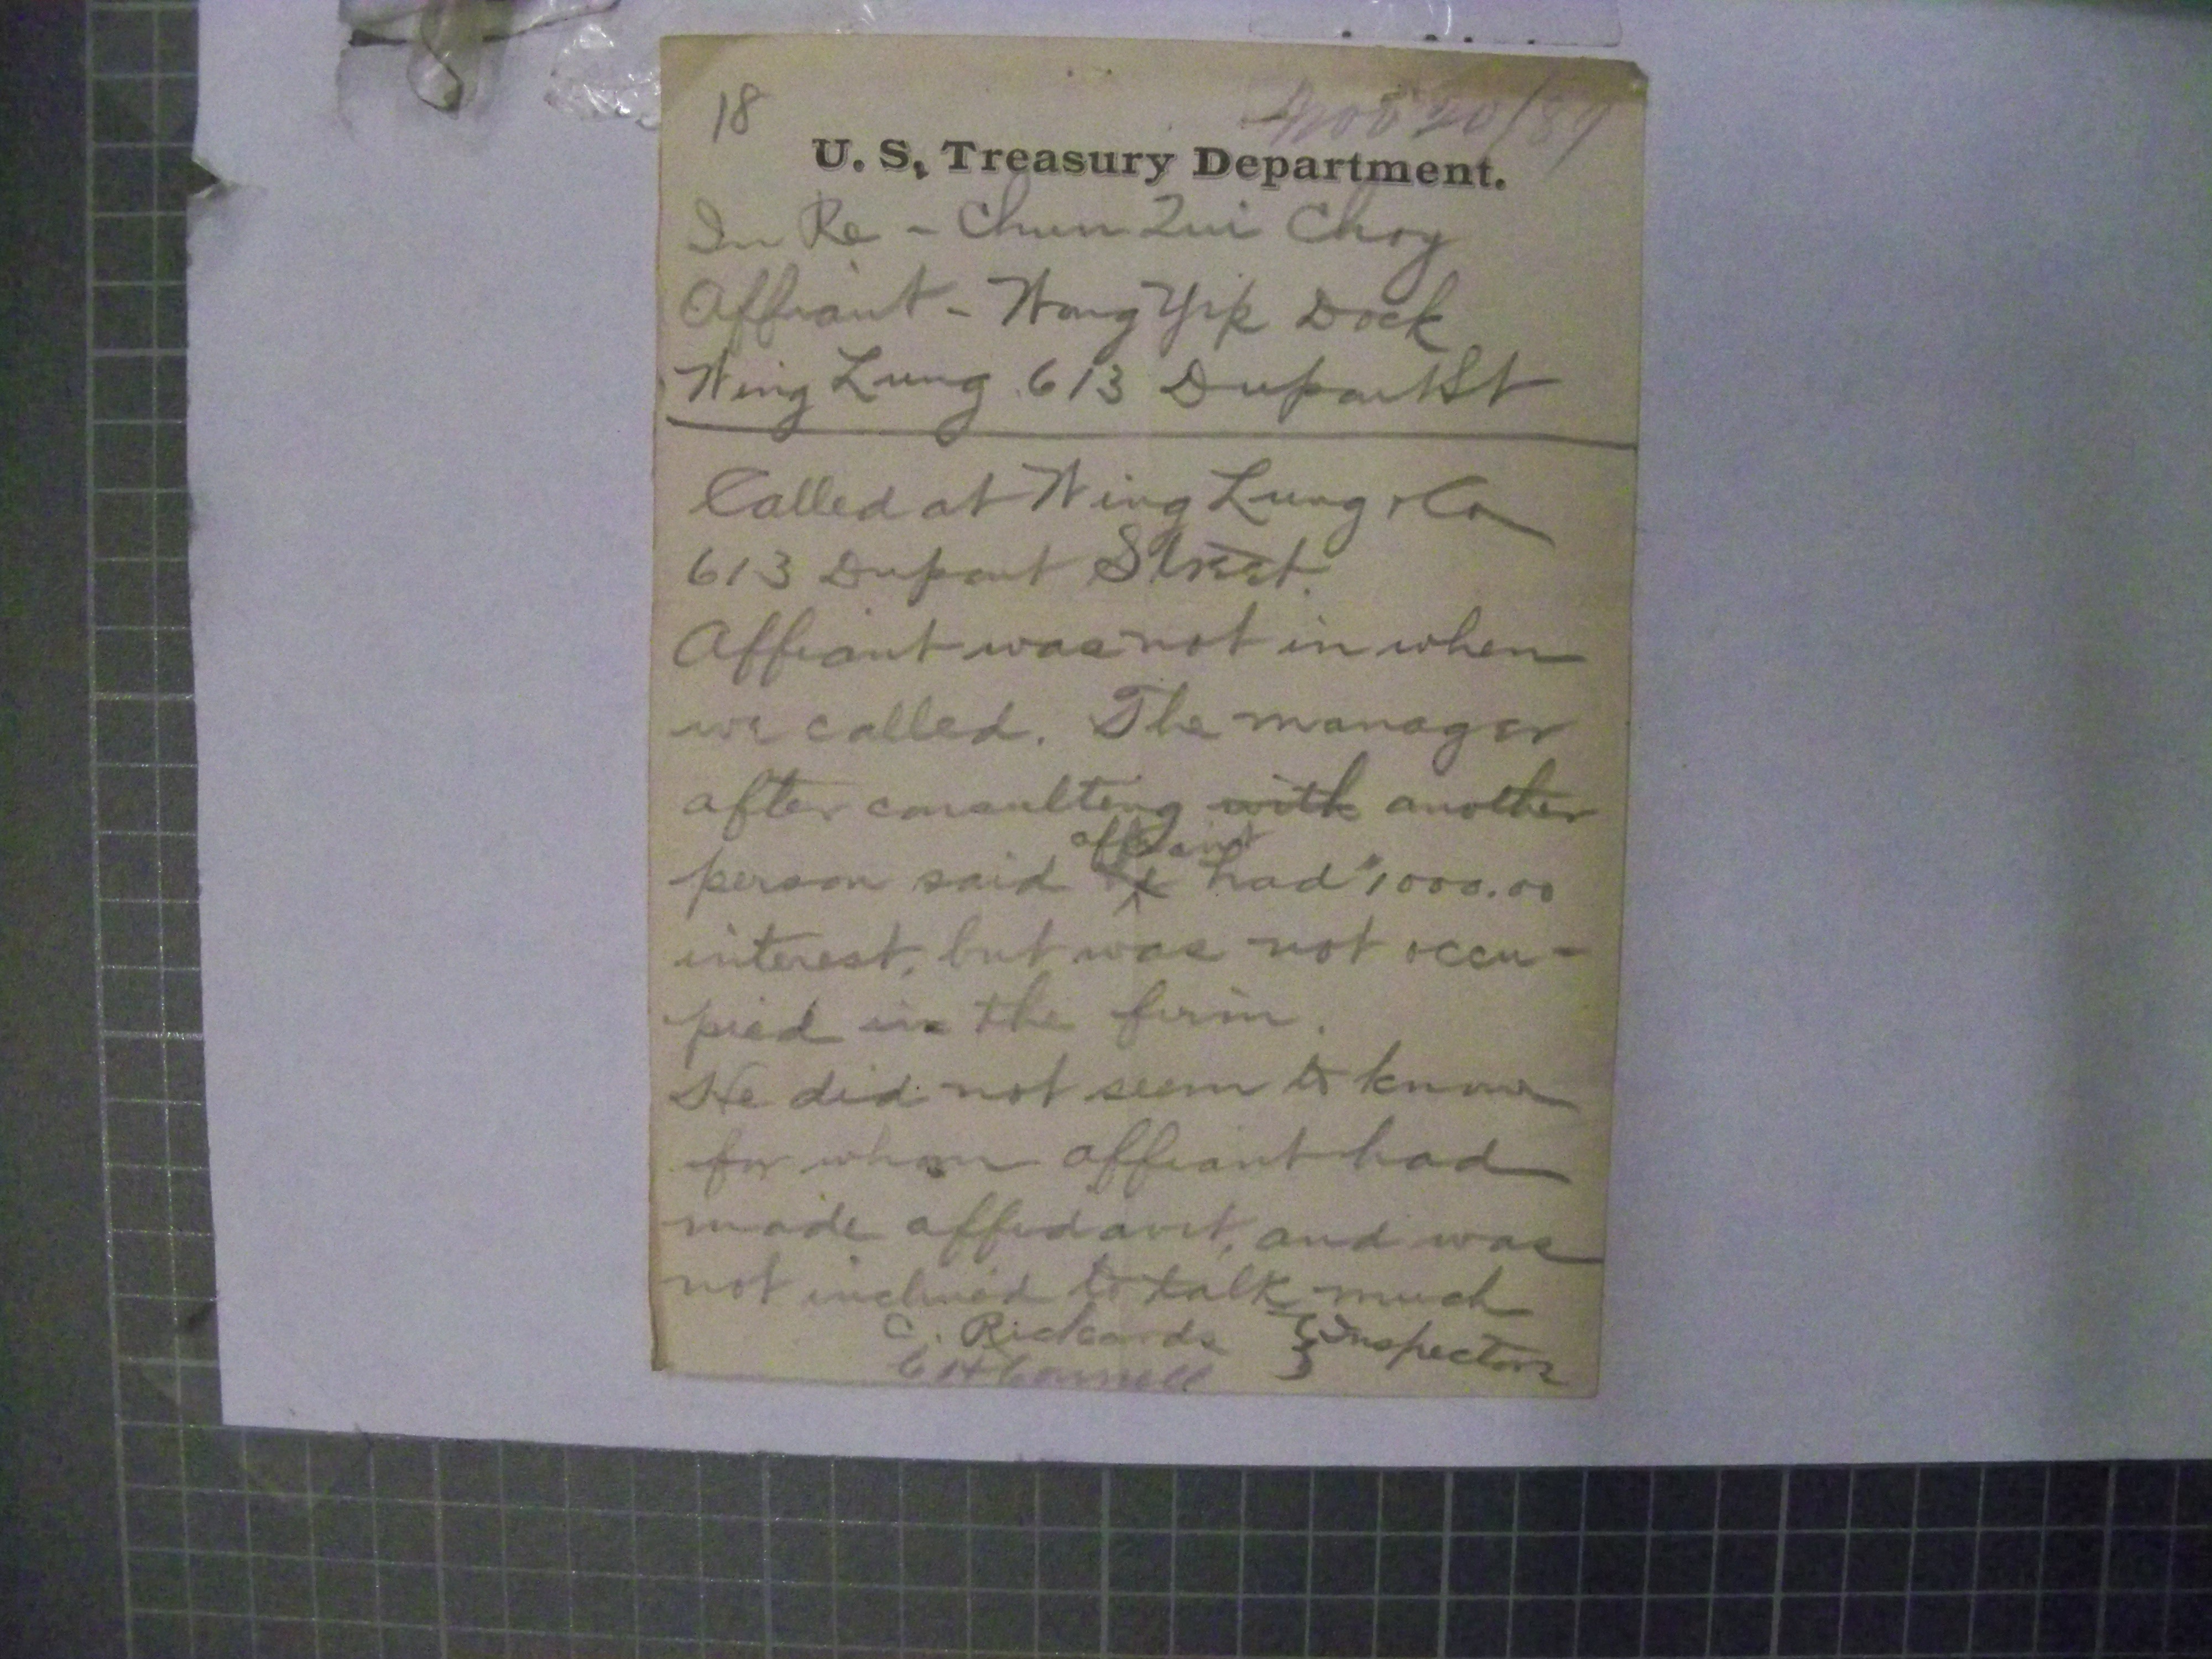 18
Nov 20/89
U. S. Treasury Department.
In Re - Chun Zui Choy
Affiant - Wong Yip Dock
Wing Lung 613 Dupont St
Called at Wing Lung & Co
613 Dupont Street.
Affiant was not in when
we called. The manager
after consulting with another
affiant
person said he had $1000.00
interest, but was not occu-
pied in the firm.
He did not seem to know
for whom affiant had
made affidavit, and was
not inclined to talk much
C. Rickards } Inspectors